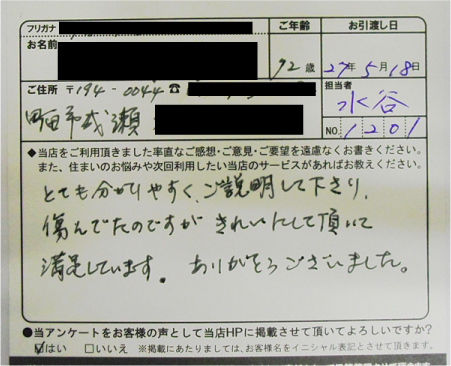 フリガナ
お名前
ご年齢
92歳
お引渡し日
27年5月18日
ご住所 〒194-0044 ☎
町田市成瀬
担当者
水谷
NO. 1201
◆当店をご利用頂きました率直なご感想・ご意見・ご要望を遠慮なくお書きください。
また、住まいのお悩みや次回利用したい当店のサービスがあればお教えください。
とても分かりやすくご説明して下さり、
傷んでたのですがきれいにして頂いて
満足しています。ありがとうございました。
●当アンケートをお客様の声として当店HPに掲載させて頂いてよろしいですか?
☑はい □いいえ ※掲載にあたりましては、お客様名をイニシャル表記とさせて頂きます。